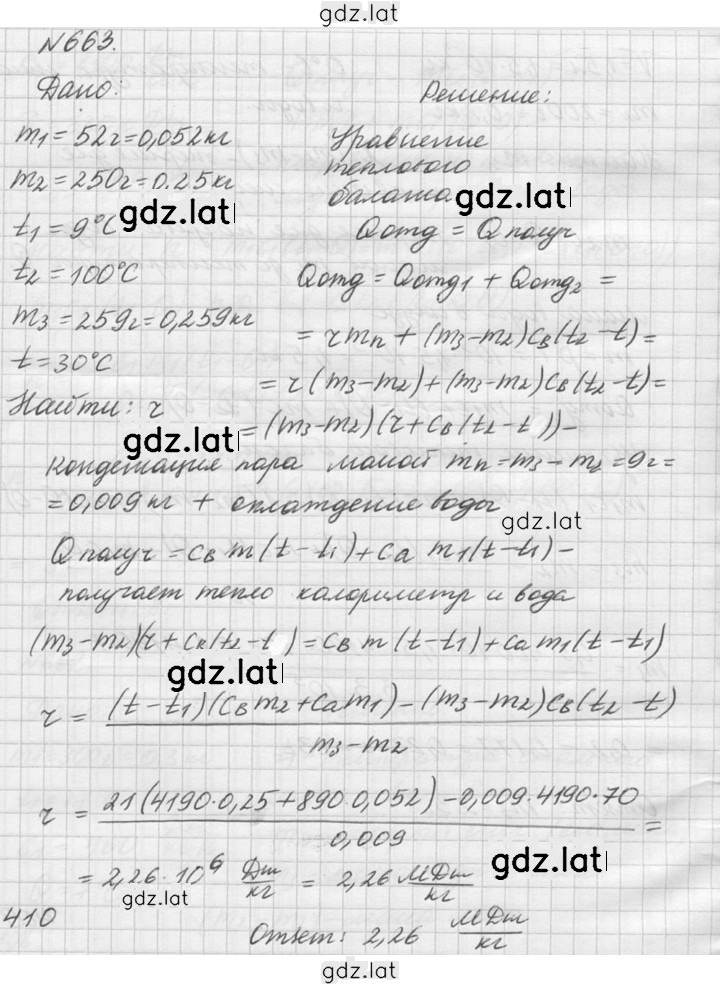 gdz.lat
№663.
Дано:
Решение:
m1 = 52г = 0,052кг
m2 = 250г = 0.25кг
t1 = 9°C
t2 = 100°C
m3 = 259г = 0,259кг
t = 30°C
Найти: r
Уравнение
теплового
баланса
gdz.lat
gdz.lat
Qотд = Qполуч
Qотд = Qотд1 + Qотд2 =
= rmп + (m3-m2)cв(t2-t) =
= r(m3-m2)+(m3-m2)cв(t2-t)=
= (m3-m2)(r+cв(t2-t))-
gdz.lat
конденсация пара массой mп=m3-m2=9г=
=0,009кг + охлаждение воды
gdz.lat
Qполуч = cв m(t-t1)+ca m1(t-t1)-
получает тепло калориметр и вода
(m3-m2)(r+cв(t2-t)=cв m(t-t1)+cam1(t-t1)
gdz.lat
r = (t-t1)(cвm2+cam1)-(m3-m2)cв(t2-t)
m3-m2
r = 21(4190·0,25+890·0,052)-0,009·4190·70 =
0,009
= 2,26·10⁶ Дж/кг = 2,26 МДж/кг
gdz.lat
gdz.lat
410
Ответ: 2,26 МДж/кг
gdz.lat